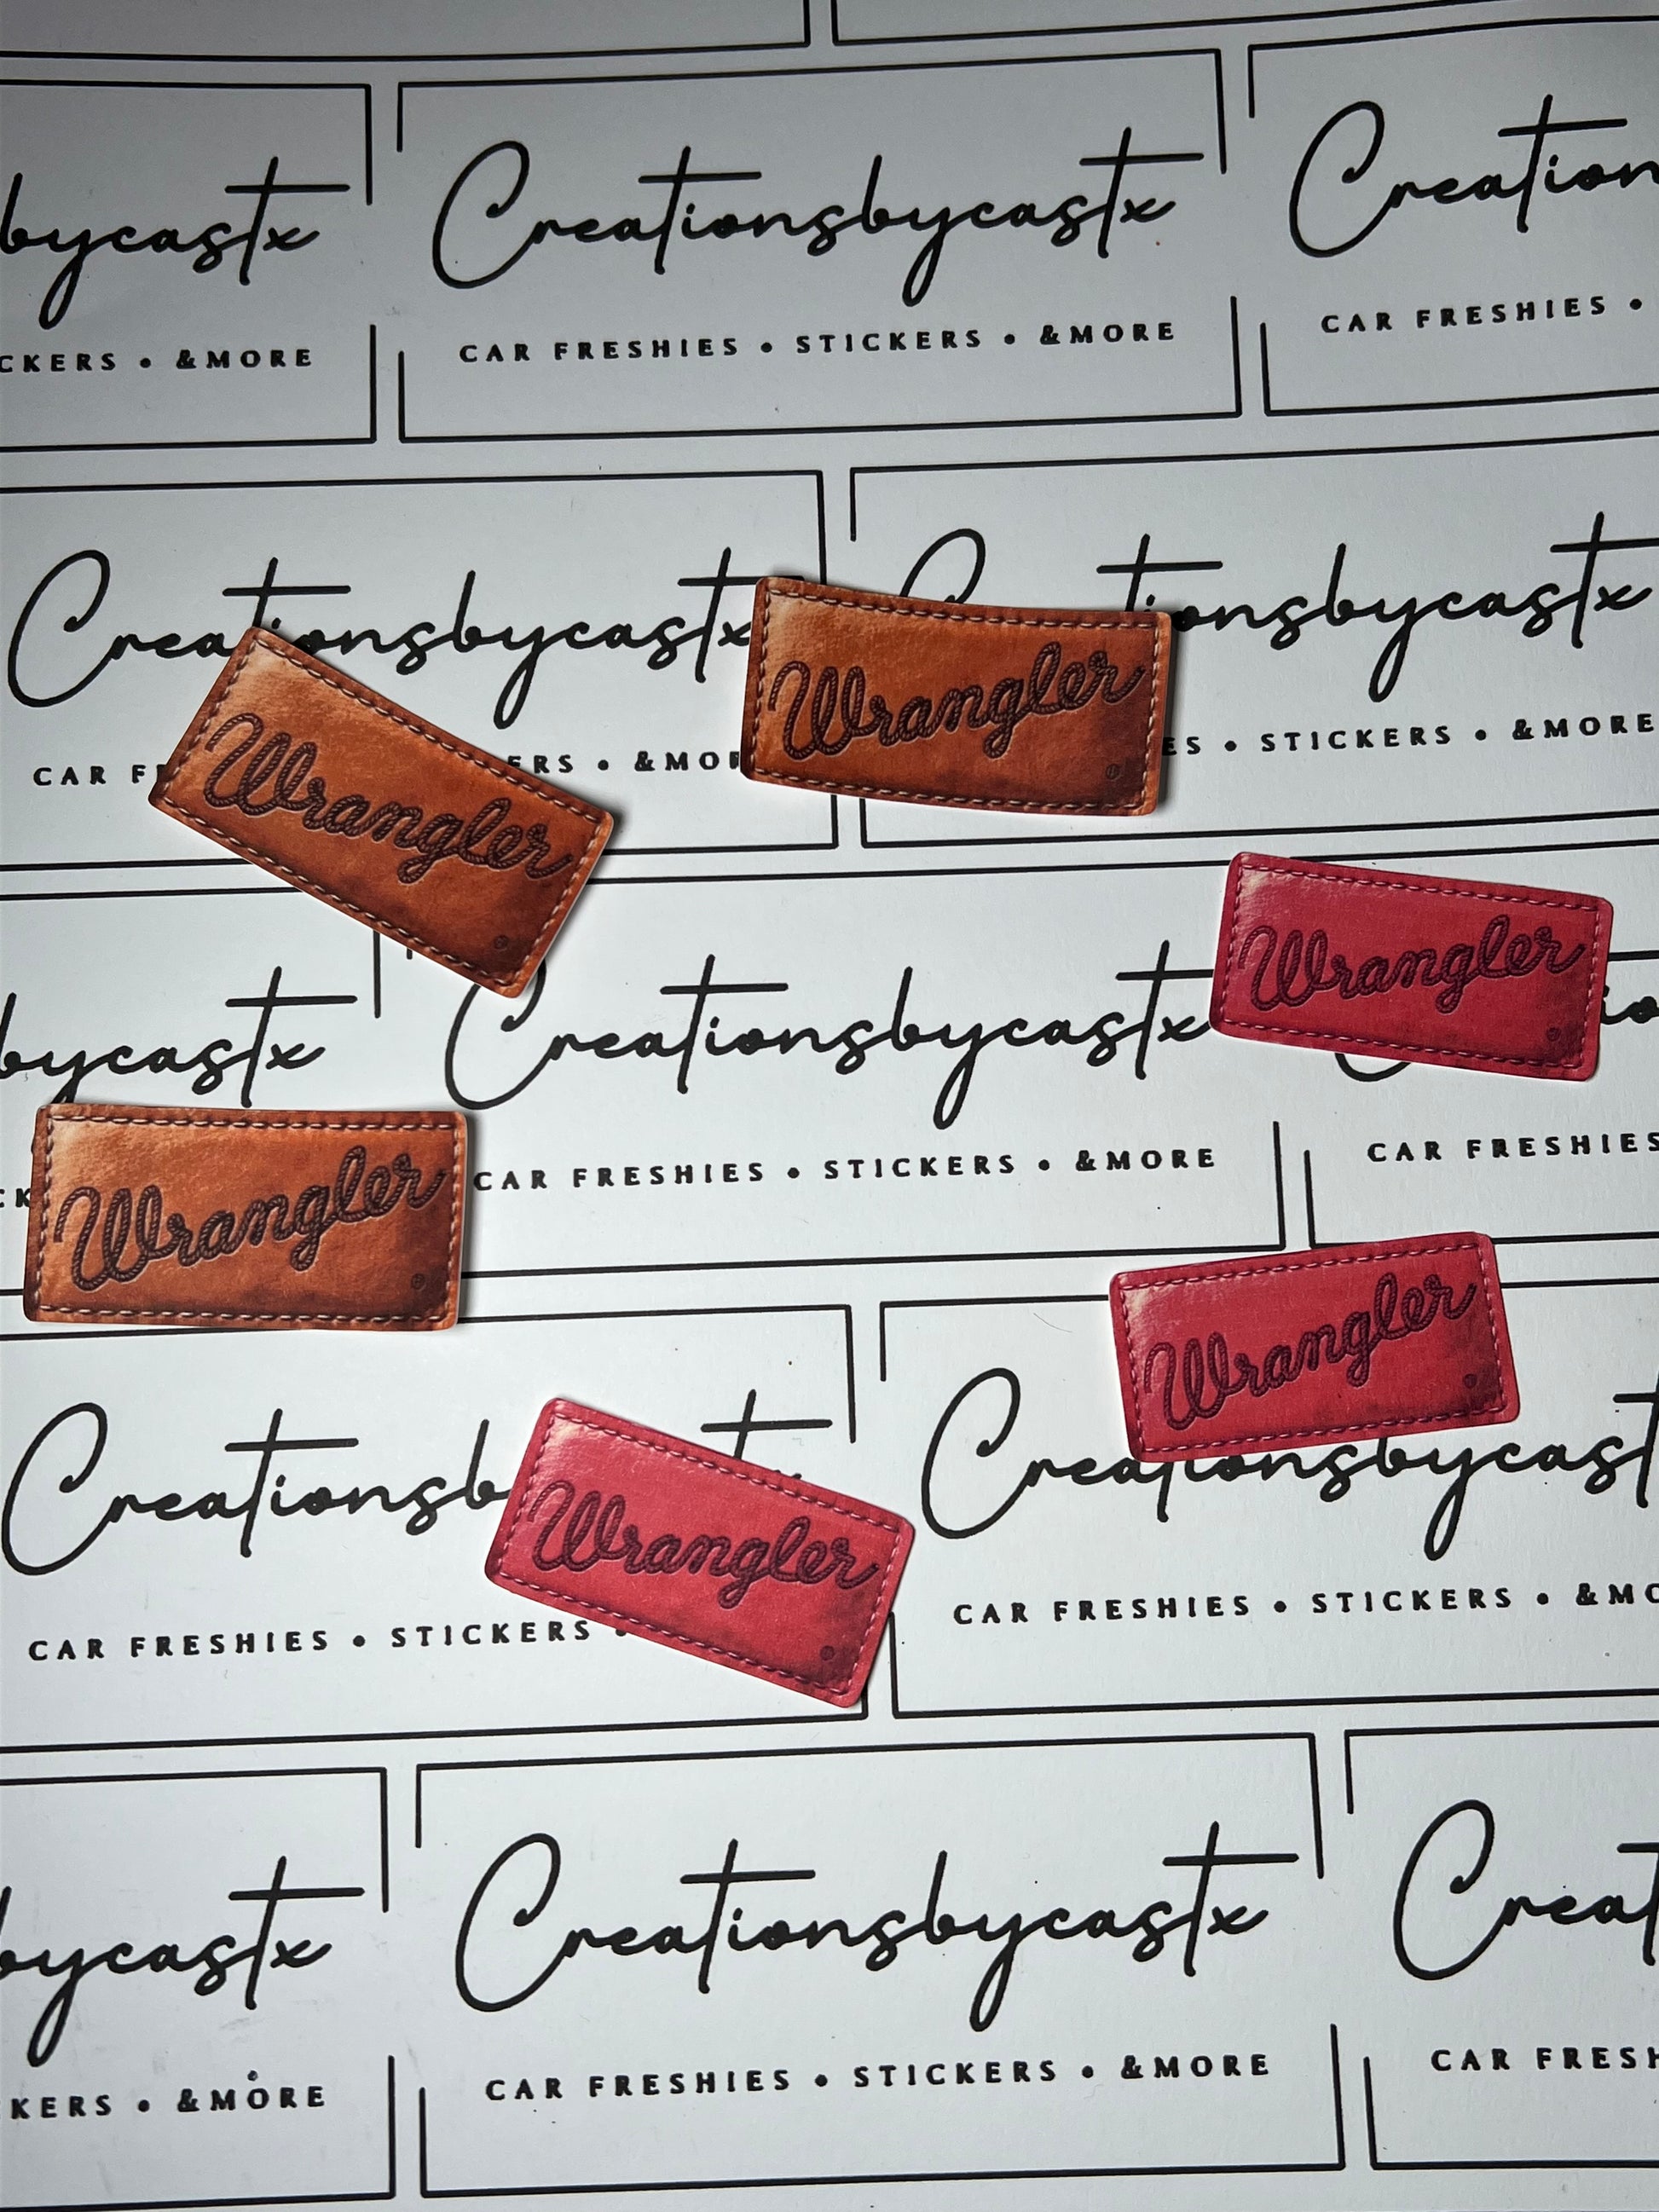 bycastx
Creationsbycastx
Creation
CKERS • &MORE
CAR FRESHIES • STICKERS • &MORE
CAR FRESHIES •
Creationsbycastx
onsbycastx
Wrangler
Wrangler
CAR F
ERS • &MOR
ES • STICKERS • &MORE
Wrangler
bycastx
Creationsbycastx
CK
CAR FRESHIES • STICKERS • &MORE
CAR FRESHIES
Wrangler
Wrangler
Creationsb
Creationsbycast
Wrangler
CAR FRESHIES • STICKERS •
CAR FRESHIES • STICKERS • &MO
bycastx
Creationsbycastx
Creat
KERS • &MORE
CAR FRESHIES • STICKERS • &MORE
CAR FRESH